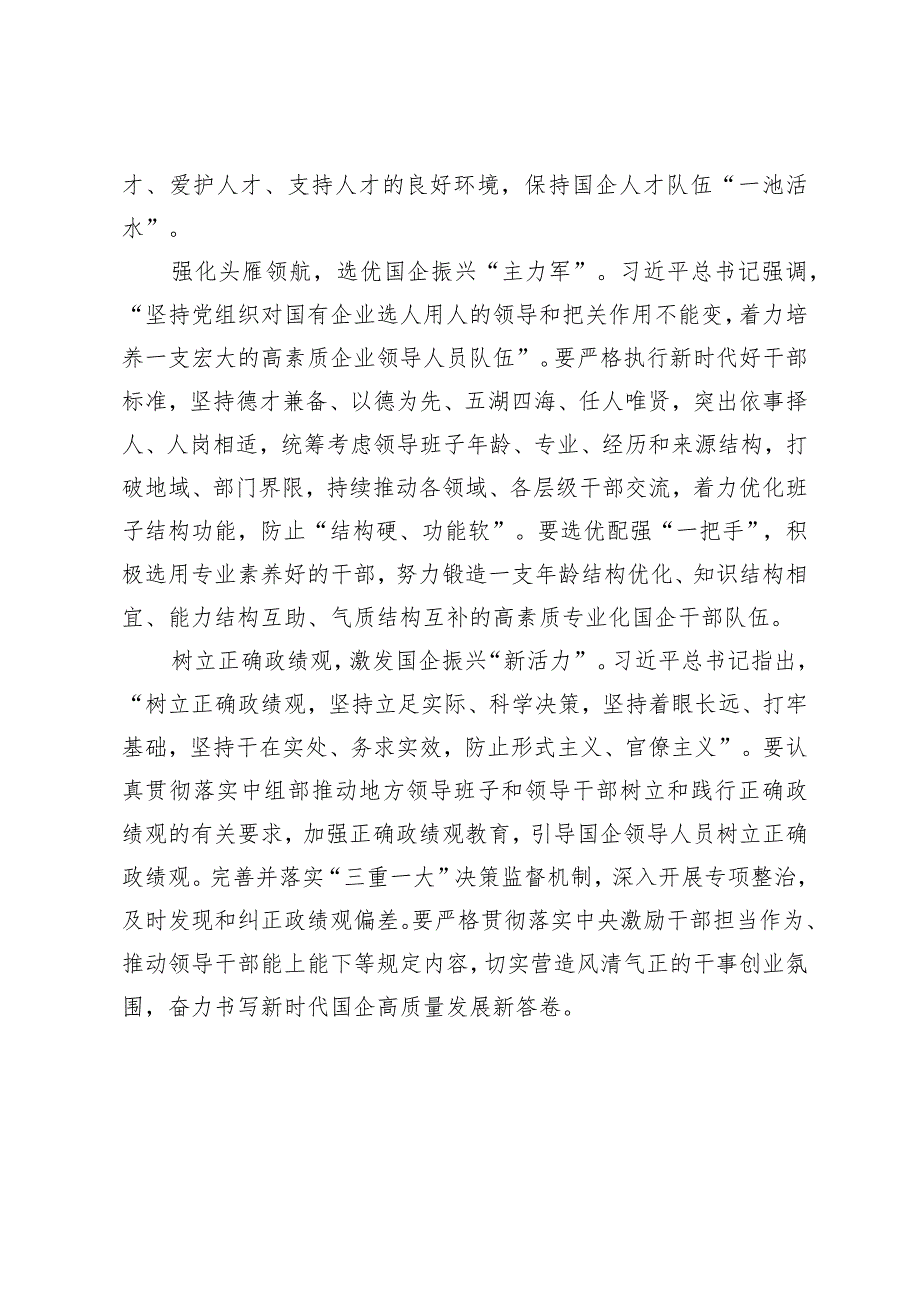 才、爱护人才、支持人才的良好环境，保持国企人才队伍“一池活
水”。
强化头雁领航，选优国企振兴“主力军”。习近平总书记强调，
“坚持党组织对国有企业选人用人的领导和把关作用不能变，着力培
养一支宏大的高素质企业领导人员队伍”。要严格执行新时代好干部
标准，坚持德才兼备、以德为先、五湖四海、任人唯贤，突出依事择
人、人岗相适，统筹考虑领导班子年龄、专业、经历和来源结构，打
破地域、部门界限，持续推动各领域、各层级干部交流，着力优化班
子结构功能，防止“结构硬、功能软”。要选优配强“一把手”，积
极选用专业素养好的干部，努力锻造一支年龄结构优化、知识结构相
宜、能力结构互助、气质结构互补的高素质专业化国企干部队伍。
树立正确政绩观，激发国企振兴“新活力”。习近平总书记指出，
“树立正确政绩观，坚持立足实际、科学决策，坚持着眼长远、打牢
基础，坚持干在实处、务求实效，防止形式主义、官僚主义”。要认
真贯彻落实中组部推动地方领导班子和领导干部树立和践行正确政
绩观的有关要求，加强正确政绩观教育，引导国企领导人员树立正确
政绩观。完善并落实“三重一大”决策监督机制，深入开展专项整治，
及时发现和纠正政绩观偏差。要严格贯彻落实中央激励干部担当作为、
推动领导干部能上能下等规定内容，切实营造风清气正的干事创业氛
围，奋力书写新时代国企高质量发展新答卷。